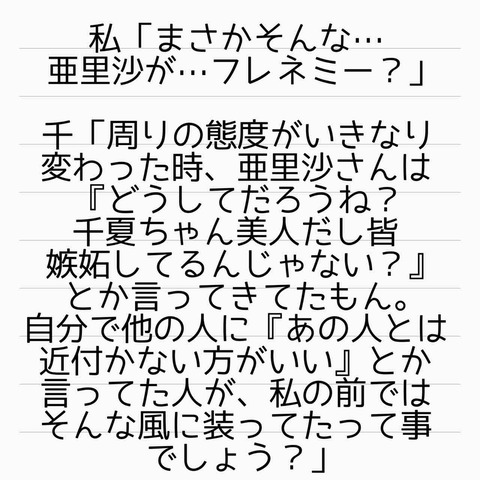 私「まさかそんな…
亜里沙が…フレネミー？」
千「周りの態度がいきなり
変わった時、亜里沙さんは
『どうしてだろうね？
千夏ちゃん美人だし皆
嫉妬してるんじゃない？』
とか言ってきてたもん。
自分で他の人に『あの人とは
近付かない方がいい』とか
言ってた人が、私の前では
そんな風に装ってたって事
でしょう？」